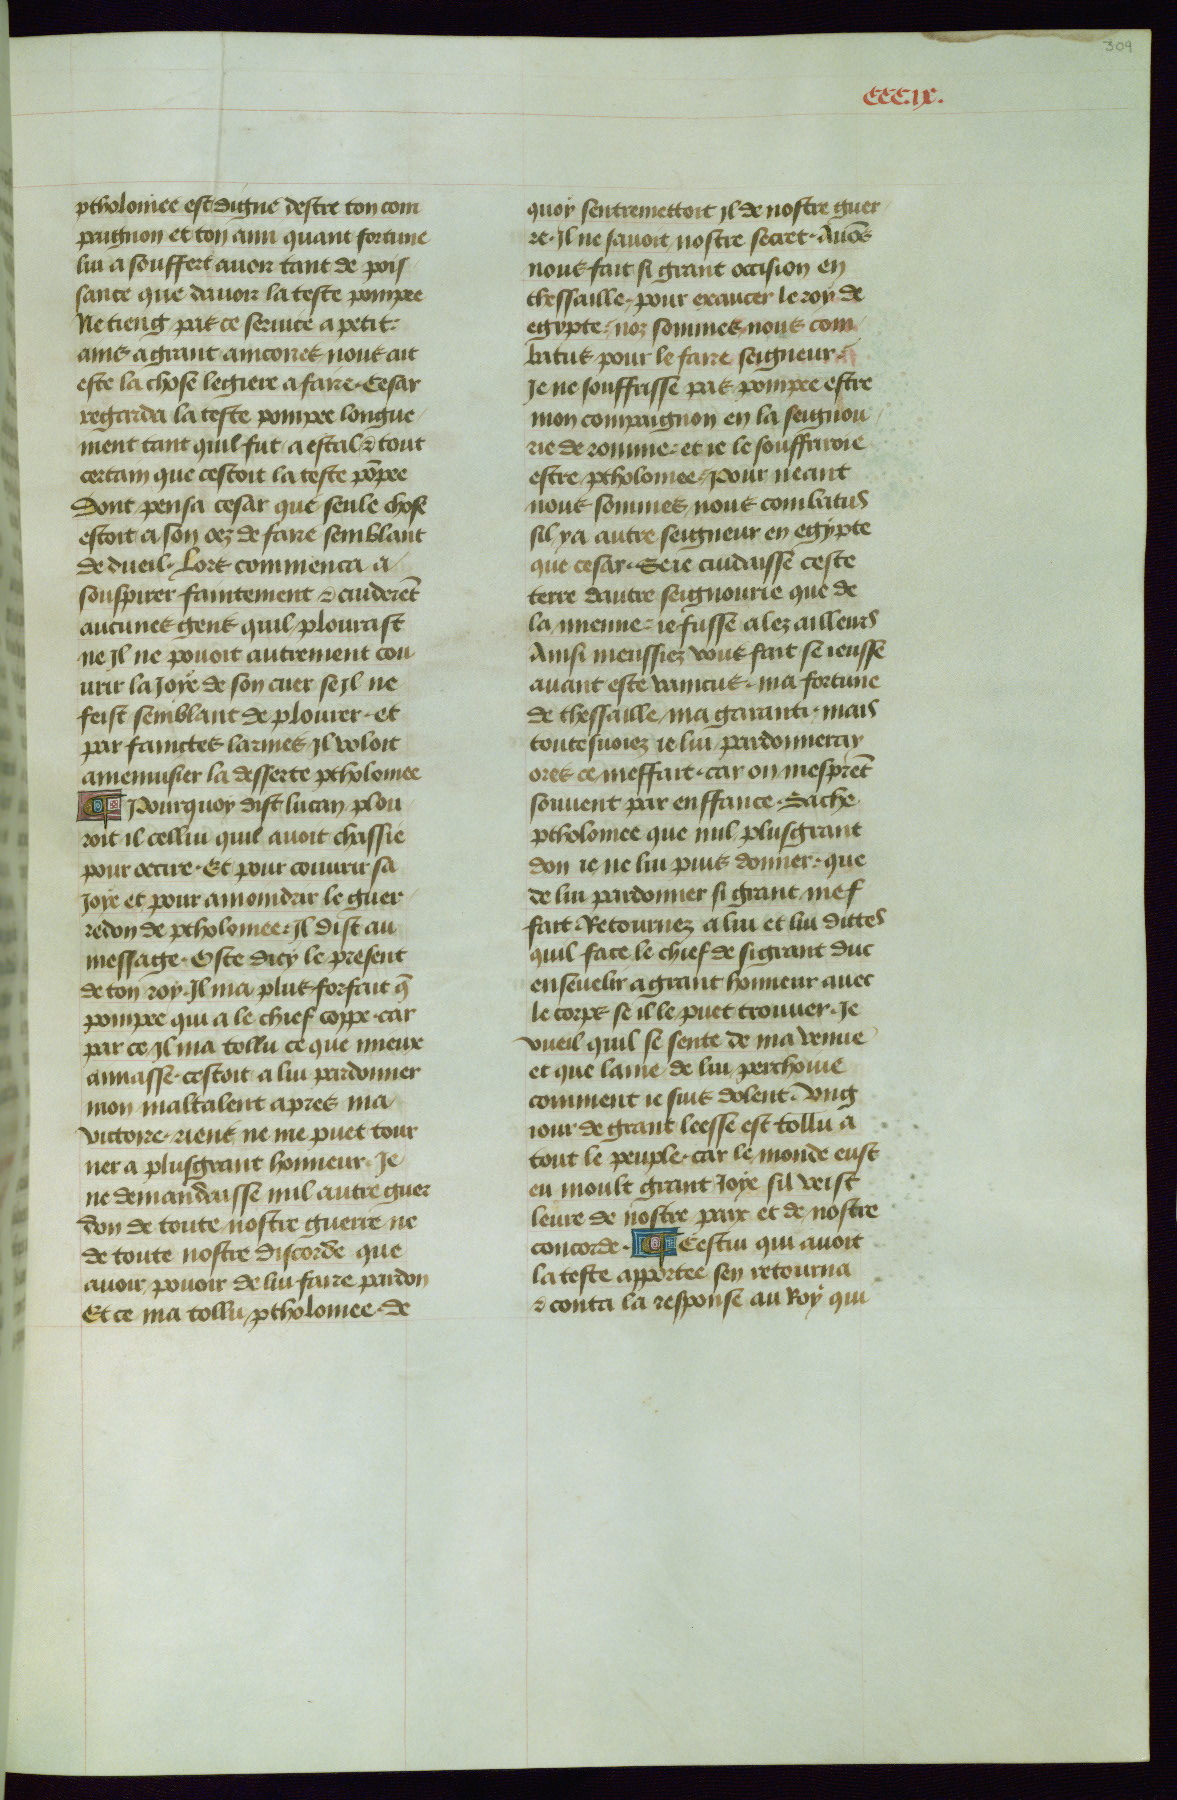 309
CCC.ix.
ptholomee est digne destre ton com
paignon et ton ami quant fortune
lui a souffert avoir tant de pois
sance que davoir la teste pompee
Ne tieng pas ce service a petit.
ains a grant aincores nous ait
este la chose legiere a faire. Cesar
regarda la teste pompee longue
ment tant quil fut a estal & tout
certain que cestoit la teste põpee
Dont pensa cesar que seule chose
estoit a son oez de faire semblant
de dueil. Lors commenca a
souspirer faintement & cuiderẽt
aucunes gens quil plourast
ne Il ne pouoit autrement cou
urir la Joye de son cuer se Il ne
feist semblant de plourer. et
par fainctes larmes Il voloit
amenuisier la desserte ptholomee
Pourquoy dist lucan plou
roit il cellui quil avoit chassie
pour occire. Et pour couurir sa
Joye et pour amoindrir le guer
redon de ptholomee. Il dist au
message. Oste dicy le present
de ton roy. Il ma plus forfait q̃
pompee qui a le chief coppe. car
par ce Il ma tollu ce que mieux
amasse. cestoit a lui pardonner
mon maltalent apres ma
victoire. riens ne me puet tour
ner a plusgrant honneur. Je
ne demandaisse nul autre guer
don de toute nostre guerre ne
de toute nostre discorde que
avoir pouoir de lui faire pardon
Et ce ma tollu ptholomee. de
quoy sentremettoit Il de nostre guer
re. Il ne savoit nostre secret. Auõs
nous fait si grant occision en
thessaille. pour exaucer le roy de
egypte. noz sommes nous com
batus pour le faire seigneur.
Je ne souffrisse pas pompee estre
mon compaignon en la seignou
rie de romme. et ie le souffreroie
estre ptholomee. Pour neant
nous sommes nous combatus
sil ya autre seigneur en egypte
que cesar. Se ie cuidaisse ceste
terre dautre seignourie que de
la mienne. ie fusse alez ailleurs
Ainsi meussiez vous fait se ieusse
avant este vaincus. ma fortune
de thessaille ma garanti. mais
toutesuoiez ie lui pardonneray
ores ce meffait. car on mesprẽt
souvent par enffance. Sache
ptholomee que nul plusgrant
don ie ne lui puis donner. que
de lui pardonner si grant mef
fait Retournez a lui et lui dittes
quil face le chief de sigrant duc
ensevelir a grant honneur avec
le corps se il le puet trouver. Je
vueil quil se sente de ma venue
et que lame de lui perchoive
comment ie suis dolent. Ung
iour de grant leesse est tollu a
tout le peuple. car le monde eust
eu moult grant Joye sil veist
leure de nostre paix et de nostre
concorde. Cestui qui avoit
la teste apportee sen retourna
& conta la response au Roy qui